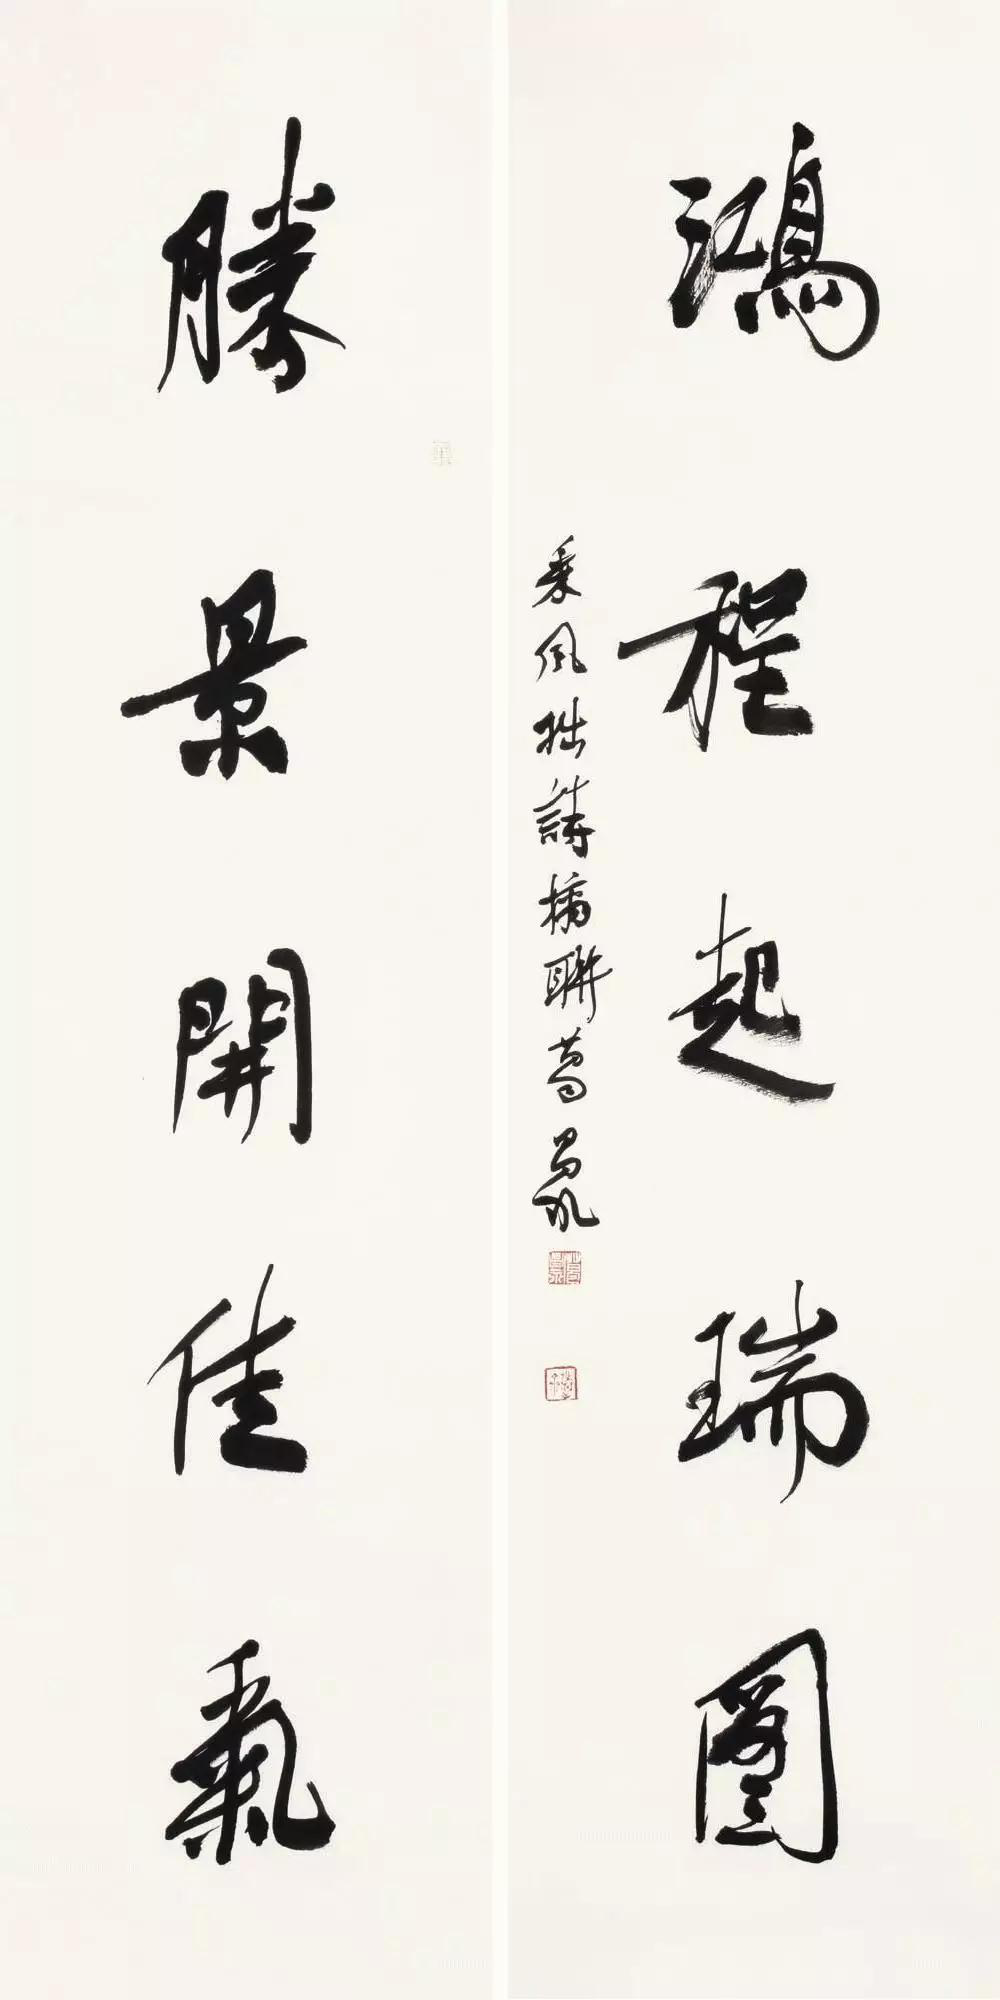 鴻程起瑞圖
乘風拙詩摘聯
勝景開佳氣